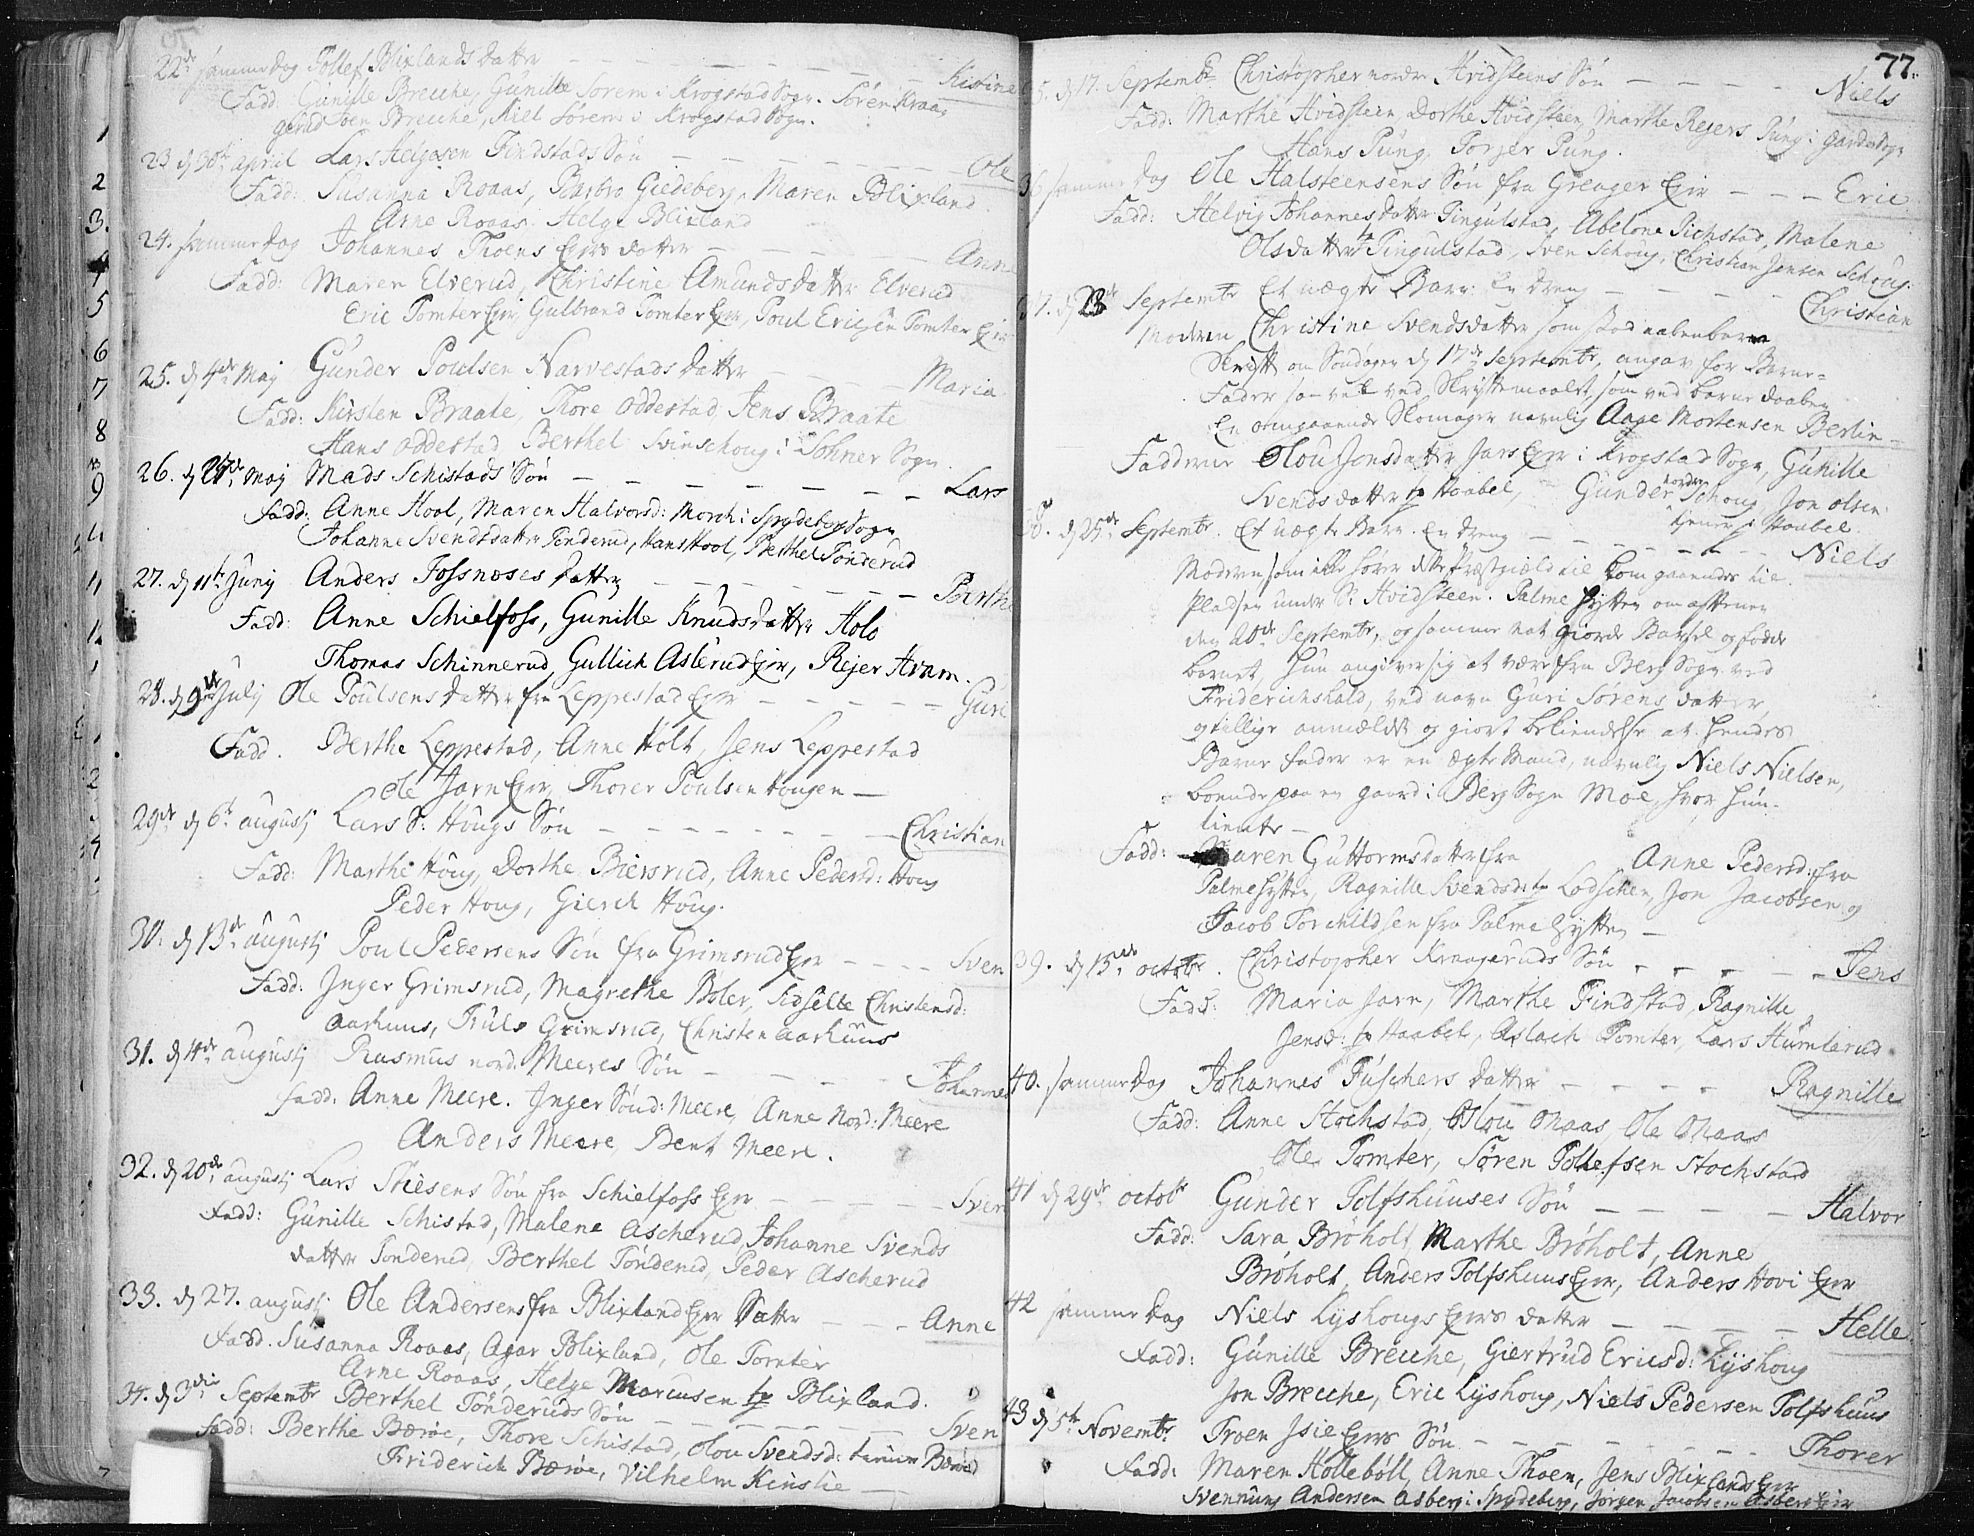 22de samme Dag Tollef Blixlands Datter — — — Kistine
Fadd: Gunille Brecche, Gunille Sorem i Krogstad Sogn. Søren Kraagerud
Iven Brecche, Niel Sørem i Krogstad Sogn.
23 d 30te april Lars Helgesen Findstads Søn — — — Ole
Fadd: Susanna Roaas, Barbro Giedeberg, Maren Blixland
Arne Roaas. Helge Blixland
24. samme Dag Johannes Thoens Eier datter — — — Anne
Fadd: Maren Elverud, Christine Amunds datter Elverud
Eric Tomter Eier, Gulbrand Tomter Eier, Poul Ericsen Tomter Eier
25. d 4de Maj Gunder Poulsen Narvestads Datter — — Maria
Fadd: Kirsten Braate, Thore Oddestad, Jens Braate
Hans Oddestad, Berthel Svinschoug i Sohner Sogn.
26. d Maj Mads Schistads Søn — — — Lars
Fadd: Anne Hool, Maren Halvorsd: Morch i Spydeberg Sogn
Johanne Svendsdatter Tønderud, Hans Hool, Berthel Tønderud
27. d 11te Junij Anders Fossnæses Datter — — — Berthe
Fadd: Anne Schielfoss, Gunille Knudsdatter Holo
Thomas Schinnerud, Gullich Aslerud Eier, Rejer Hvam.
28. d 9de July Ole Poulsens Datter fra Leppestad Eier — — — Guri
Fadd. Berthe Leppestad, Anne Holt, Jens Leppestad
Ole Jarn Eier, Thorer Poulsen Hougen —
29de d 6te augustj Lars S: Hougs Søn — — — Christian
Fadd: Marthe Houg, Dorthe Biersrud, Anne Pedersd: Houg
Peder Houg, Gierch Houg.
30. d 13de augustj Poul Pedersens Søn fra Grimsrud Eier — — — Sven
Fadd: Inger Grimsrud, Magrethe Boler, Sidselle Christensd:
Aarhuus, Truls Grimsrud, Christen Aarhuus
31. d augustj Rasmus nord. Meeres Søn — — — Johannes
Fadd: Anne Meere. Inger Sønd: Meere, Anne Nord: Meere
Anders Meere, Bent Meere.
32. d 20de augustj Lars Nilsens Søn fra Schielfoss Eier — — — Sven
Fadd: Gunille Schistad, Malene Ascherud, Johanne Svends
datter Tønderud, Berthel Tønderud, Peder Ascherud
33. d 27. augustj Ole Andersens fra Blixland Eier Datter — — Anne
Fadd. Susanna Roaas, Agar Blixland, Ole Tomter
Arne Roaas, Helge Marcusen Blixland.
34. d 3die Septembr Berthel Tønderuds Søn — — — Sven
Fadd: Berthe Bærøe, Thore Schistad, Olou Svendsd: Bærøe
Friderich Bærøe, Vilhelm Kinslie —
77.
35. d 17. Septembr Christopher nordre Hvidsteens Søn — — — Niels
Fadd: Marthe Hvidsteen, Dorthe Hvidsteen, Marthe Rejers Pung i Garder Sogn
Hans Pung, Torger Pung.
36 samme Dag Ole Halsteensens Søn fra Greager Eier — — — Eric
Fadd: Helvig Johannesdatter Tingulstad, Abelone Sichstad, Malene
Olsdatter Tingulstad, Sven Schoug, Christian Jensen Schoug.
37. d Septembr Et uægte Barn. En dreng — — — Christian
Moderen Christine Svendsdatter som stod aabenbare
Skrift om Søndagen d 17de Septembr, angav for Barne-
Fader saa vel ved Skriftemaalet, som ved barne daaben
En omgaaende Skomager navnlig Aage Mortensen Berlin —
Faddere Olou Jensdatter Jars Eier i Krogstad Sogn, Gunille
Svendsdatter Haabel, Gunder nordre Schoug, Jon Olsen
tiener i Haabel.
38. d 24de Septembr. Et uægte Barn. En dreng — — — Niels
Moderen som ikke hører dette Præstegield til kom gaaende til
Pladsen under S: Hvidsteen. Palme Hytten om afftenen
den 20de Septembr, og samme nat giorde Barsel og fødde
barnet, hun angiver sig at være fra Berg Sogn ved
Friderichshald, ved navn Guri Sørens datter,
og tillige anmeldt og giort bekiendelse at hendes
Barne fader er en ægte Mand, navnlig Niels Nielsen,
boende paa en gaard i Berg Sogn Moe, hvor hun
tiente —
Fadd: Maren Guttormsdatter fra Anne Pedersd: fra
Palmehytten, Ragnille Svendsd: Lodschen, Jon Jacobsen og
Jacob Torchildsen fra Palme hytten —
39. d 15de octobr. Christopher Kraageruds Søn — — — Jens
Fadd: Maria Jarn, Marthe Findstad, Ragnille
Jensd: Haabel, Aslach Tomter, Lars Humlerud
40. samme Dag Johannes Fuschers datter — — — Ragnille
Fadd: Anne Stochstad, Olou Naas, Ole Naas
Ole Tomter, Søren Tollefsen Stochstad
41 d 29de octobr Gunder Tolfshuuses Søn — — — Halvor
Fadd: Sara Brøholt, Marthe Brøholt, Anne
Brøholt, Anders Tolfshuus Eier, Anders Hovi Eier
42 samme Dag Niels Lyshougs Eiers datter — — — Helle
Fadd: Gunille Brecche, Giertrud Ericsd: Lyshoug
Jon Brecche, Eric Lyshoug, Niels Pedersen Tolfshuus
43 d 5te Novembr Troen Isie Eiers Søn — — — Thorer
Fadd: Maren Hollebøll, Anne Thoen, Jens Blixlands Eier
Svennung Andersen Asberg i Spydeberg, Jørgen Jacobsen Asberg Eier